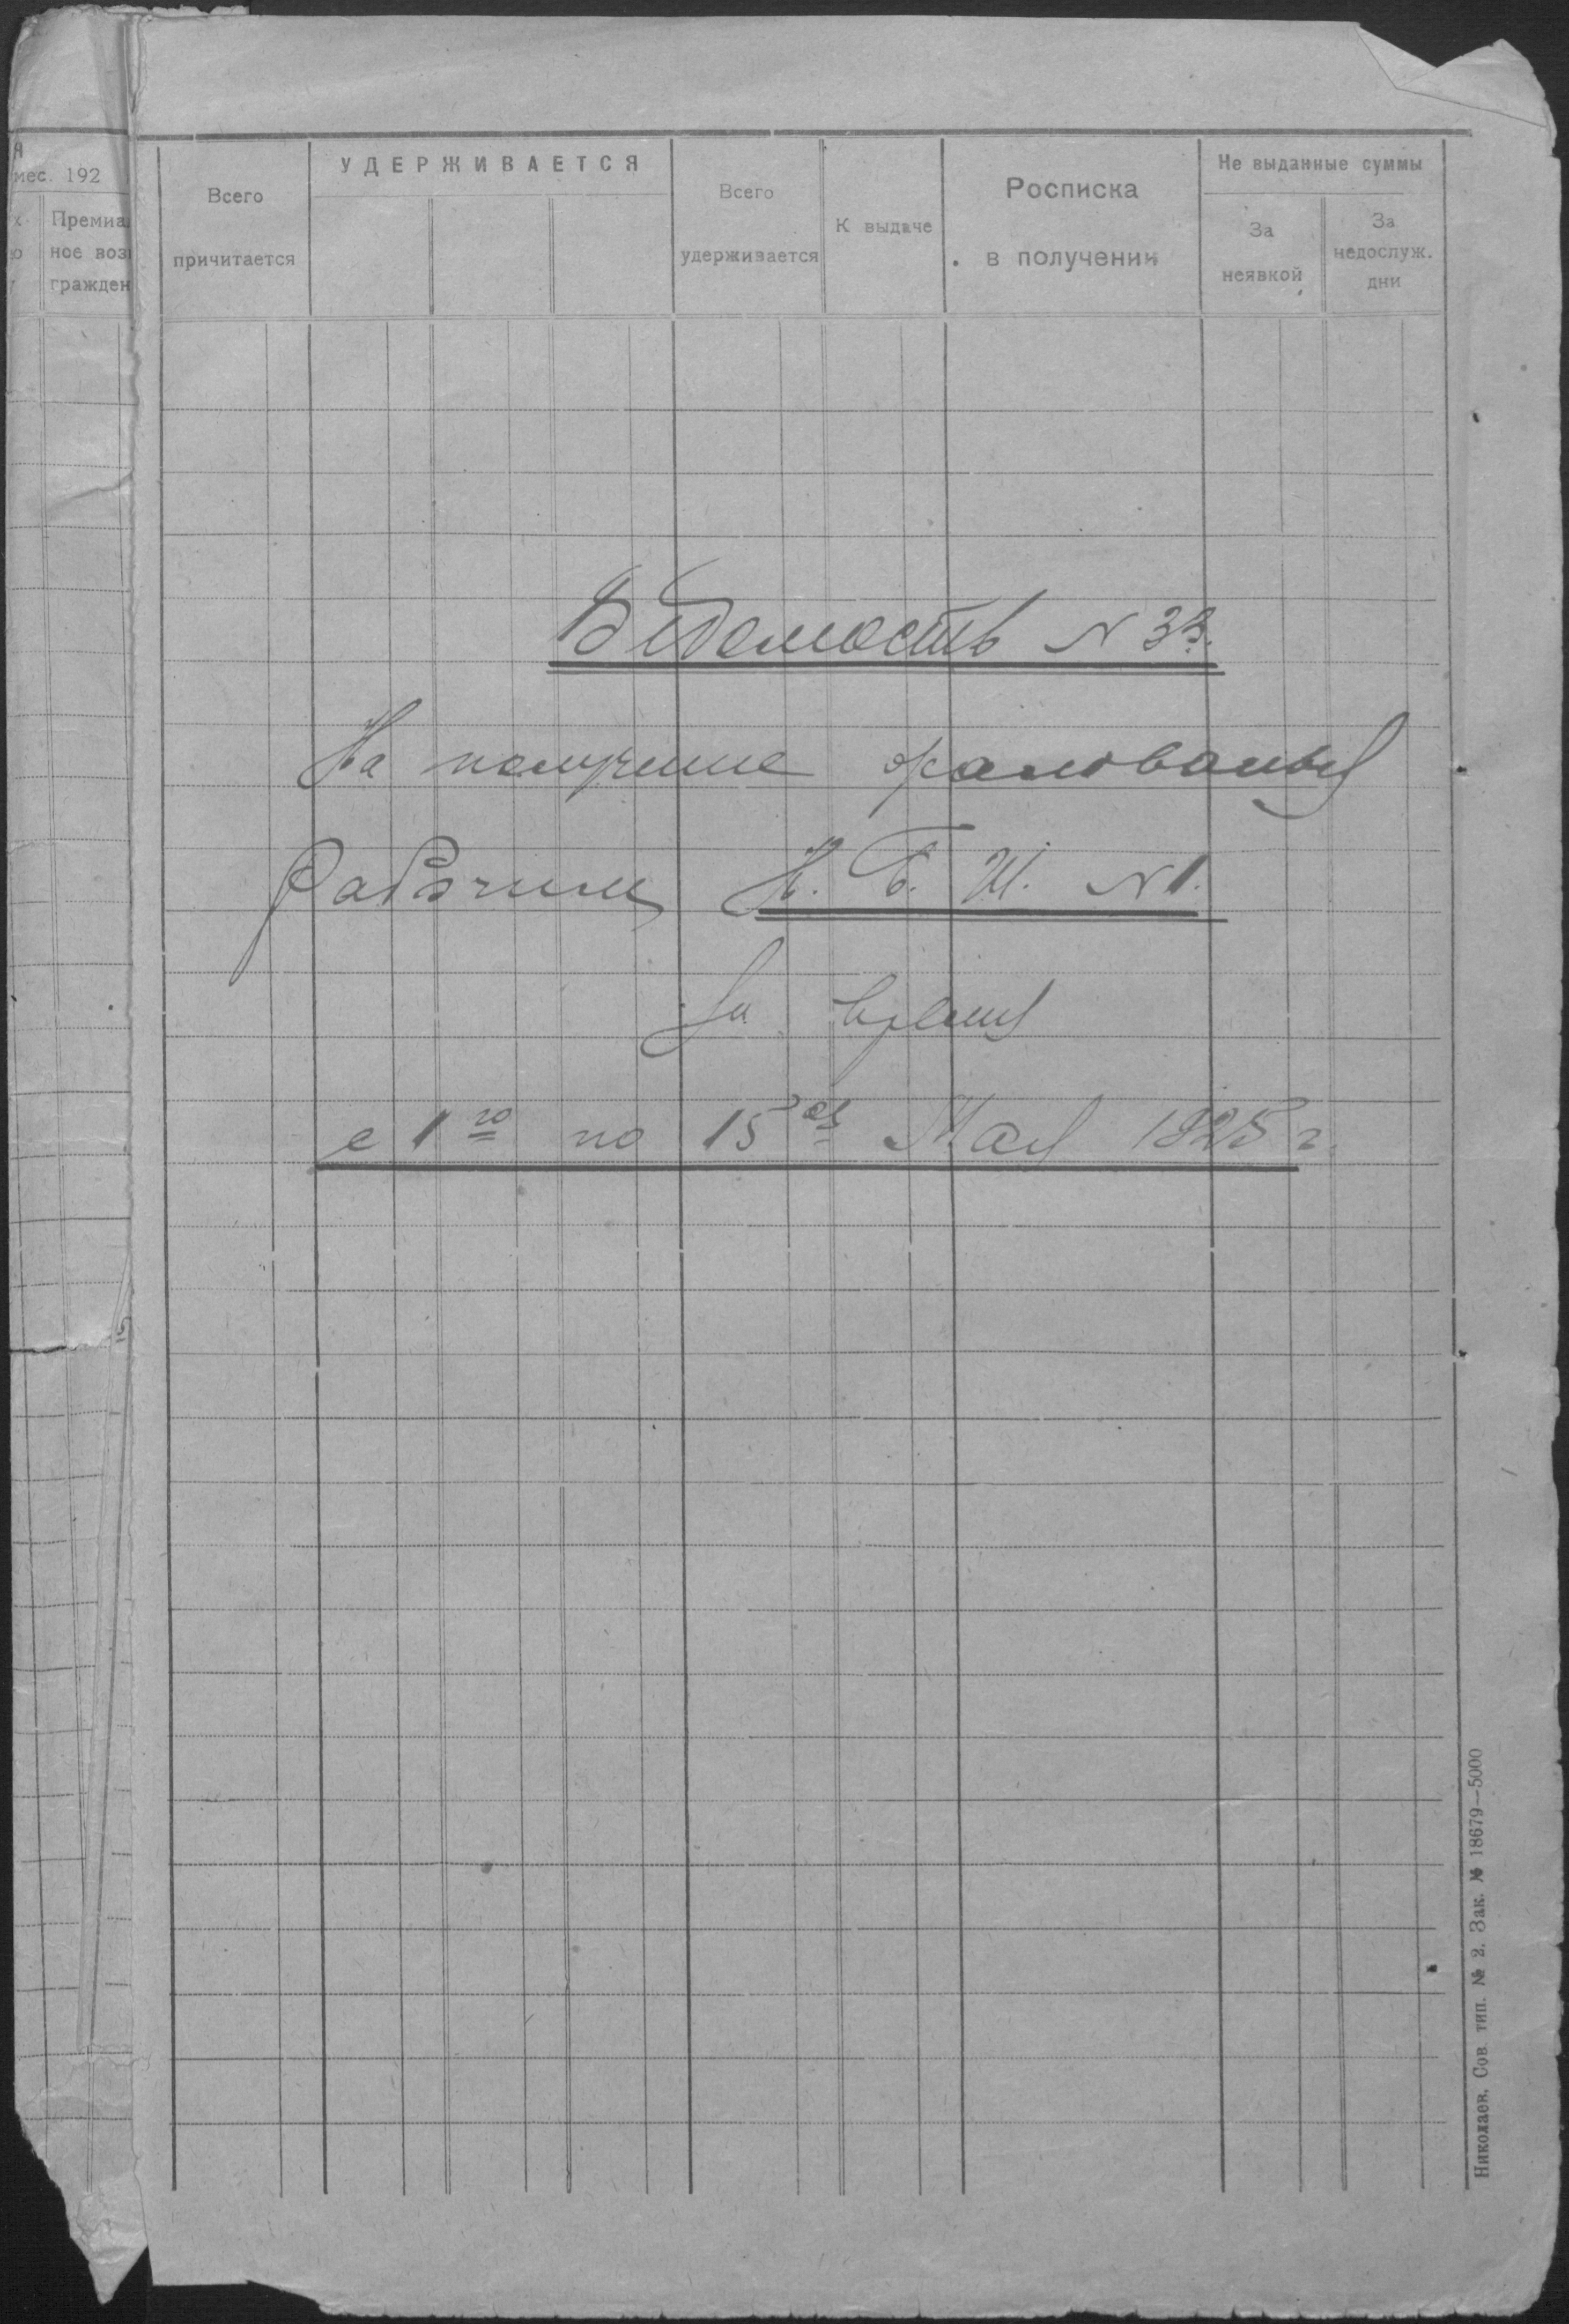 мес. 192
Премиа
ное воз
гражден
Всего
причитается
УДЕРЖИВАЕТСЯ
Всего
удерживается
К выдаче
Росписка
в получении
Не выданные суммы
За
неявкой
За
недослуж.
дни
Ведомость N 33.
На получение жалованья
рабочим Н. Б. И. N 1.
За время
с 1го по 15ое Мая 1925 г.
Николаев, Сов. тип. № 2. Зак. № 18679—5000